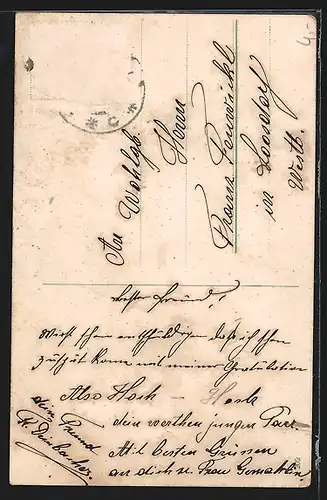 An Wohlgeb.
Herrn
Franz
in Loosdorf
Westb.
bester Freund!
Wirst schon entschuldigen daß ich schon
zu spät komme mit meiner Gratulation
Also Hoch – Hoch
dem werthen jungen Paar
Mit besten Grüssen
an dich u. Frau Gemahlin
dein
Freund